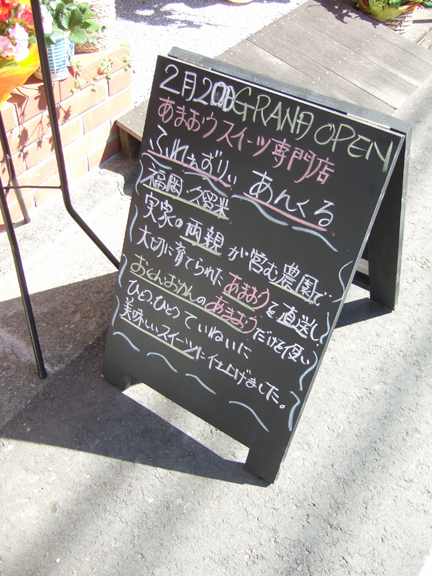 2月20日 GRAND OPEN
あまおうスイーツ専門店
ふれぇずりぃ あんくる
福岡 久留米
実家の両親が営む農園で
大切に育てられたあまおうを直送し、
おとんおかんのあまおうだけを使い
ひとつひとつていねいに
美味しいスイーツに仕上げました。